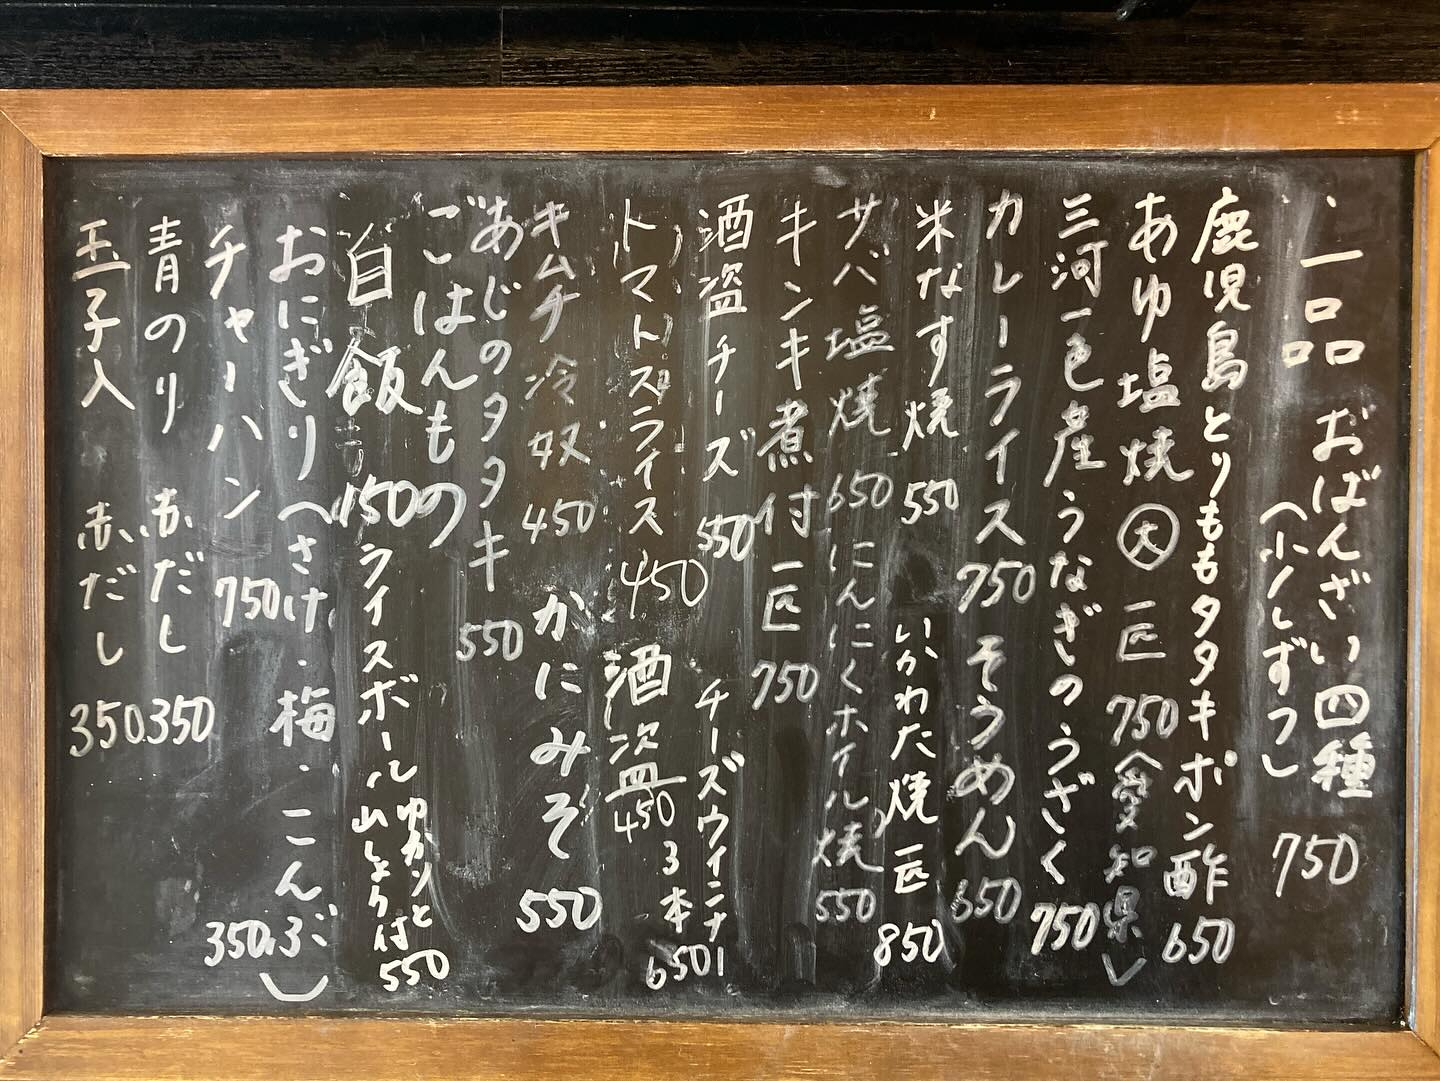 一品
おばんざい四種
(少しずつ) 750
鹿児島とりももタタキポン酢 650
あゆ塩焼 大 一匹 750 (愛知県)
三河一色産うなぎのうざく 750
カレーライス 750
そうめん 650
米なす焼 550
いかわた焼 一匹 850
サバ塩焼 650
にんにくホイル焼 550
キンキ煮付 一匹 750
酒盗チーズ 550
チーズウインナー
3本 650
トマトスライス 450
酒盗 450
キムチ冷奴 450
かにみそ 550
あじのタタキ 550
ごはんもの
白飯 150
ライスボール ゆカリと山しょう付 550
おにぎり(さけ・梅・こんぶ) 350
チャーハン 750
青のり 赤だし 350
玉子入 赤だし 350